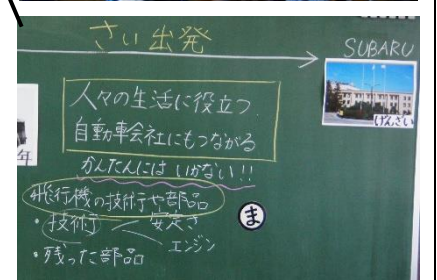 さい出発
SUBARU
げんざい
人々の生活に役立つ
自動車会社にもつながる
年
かんたんには いかない!!
飛行機の技術や部品
・技術 安定さ
エンジン
・残った部品
ま